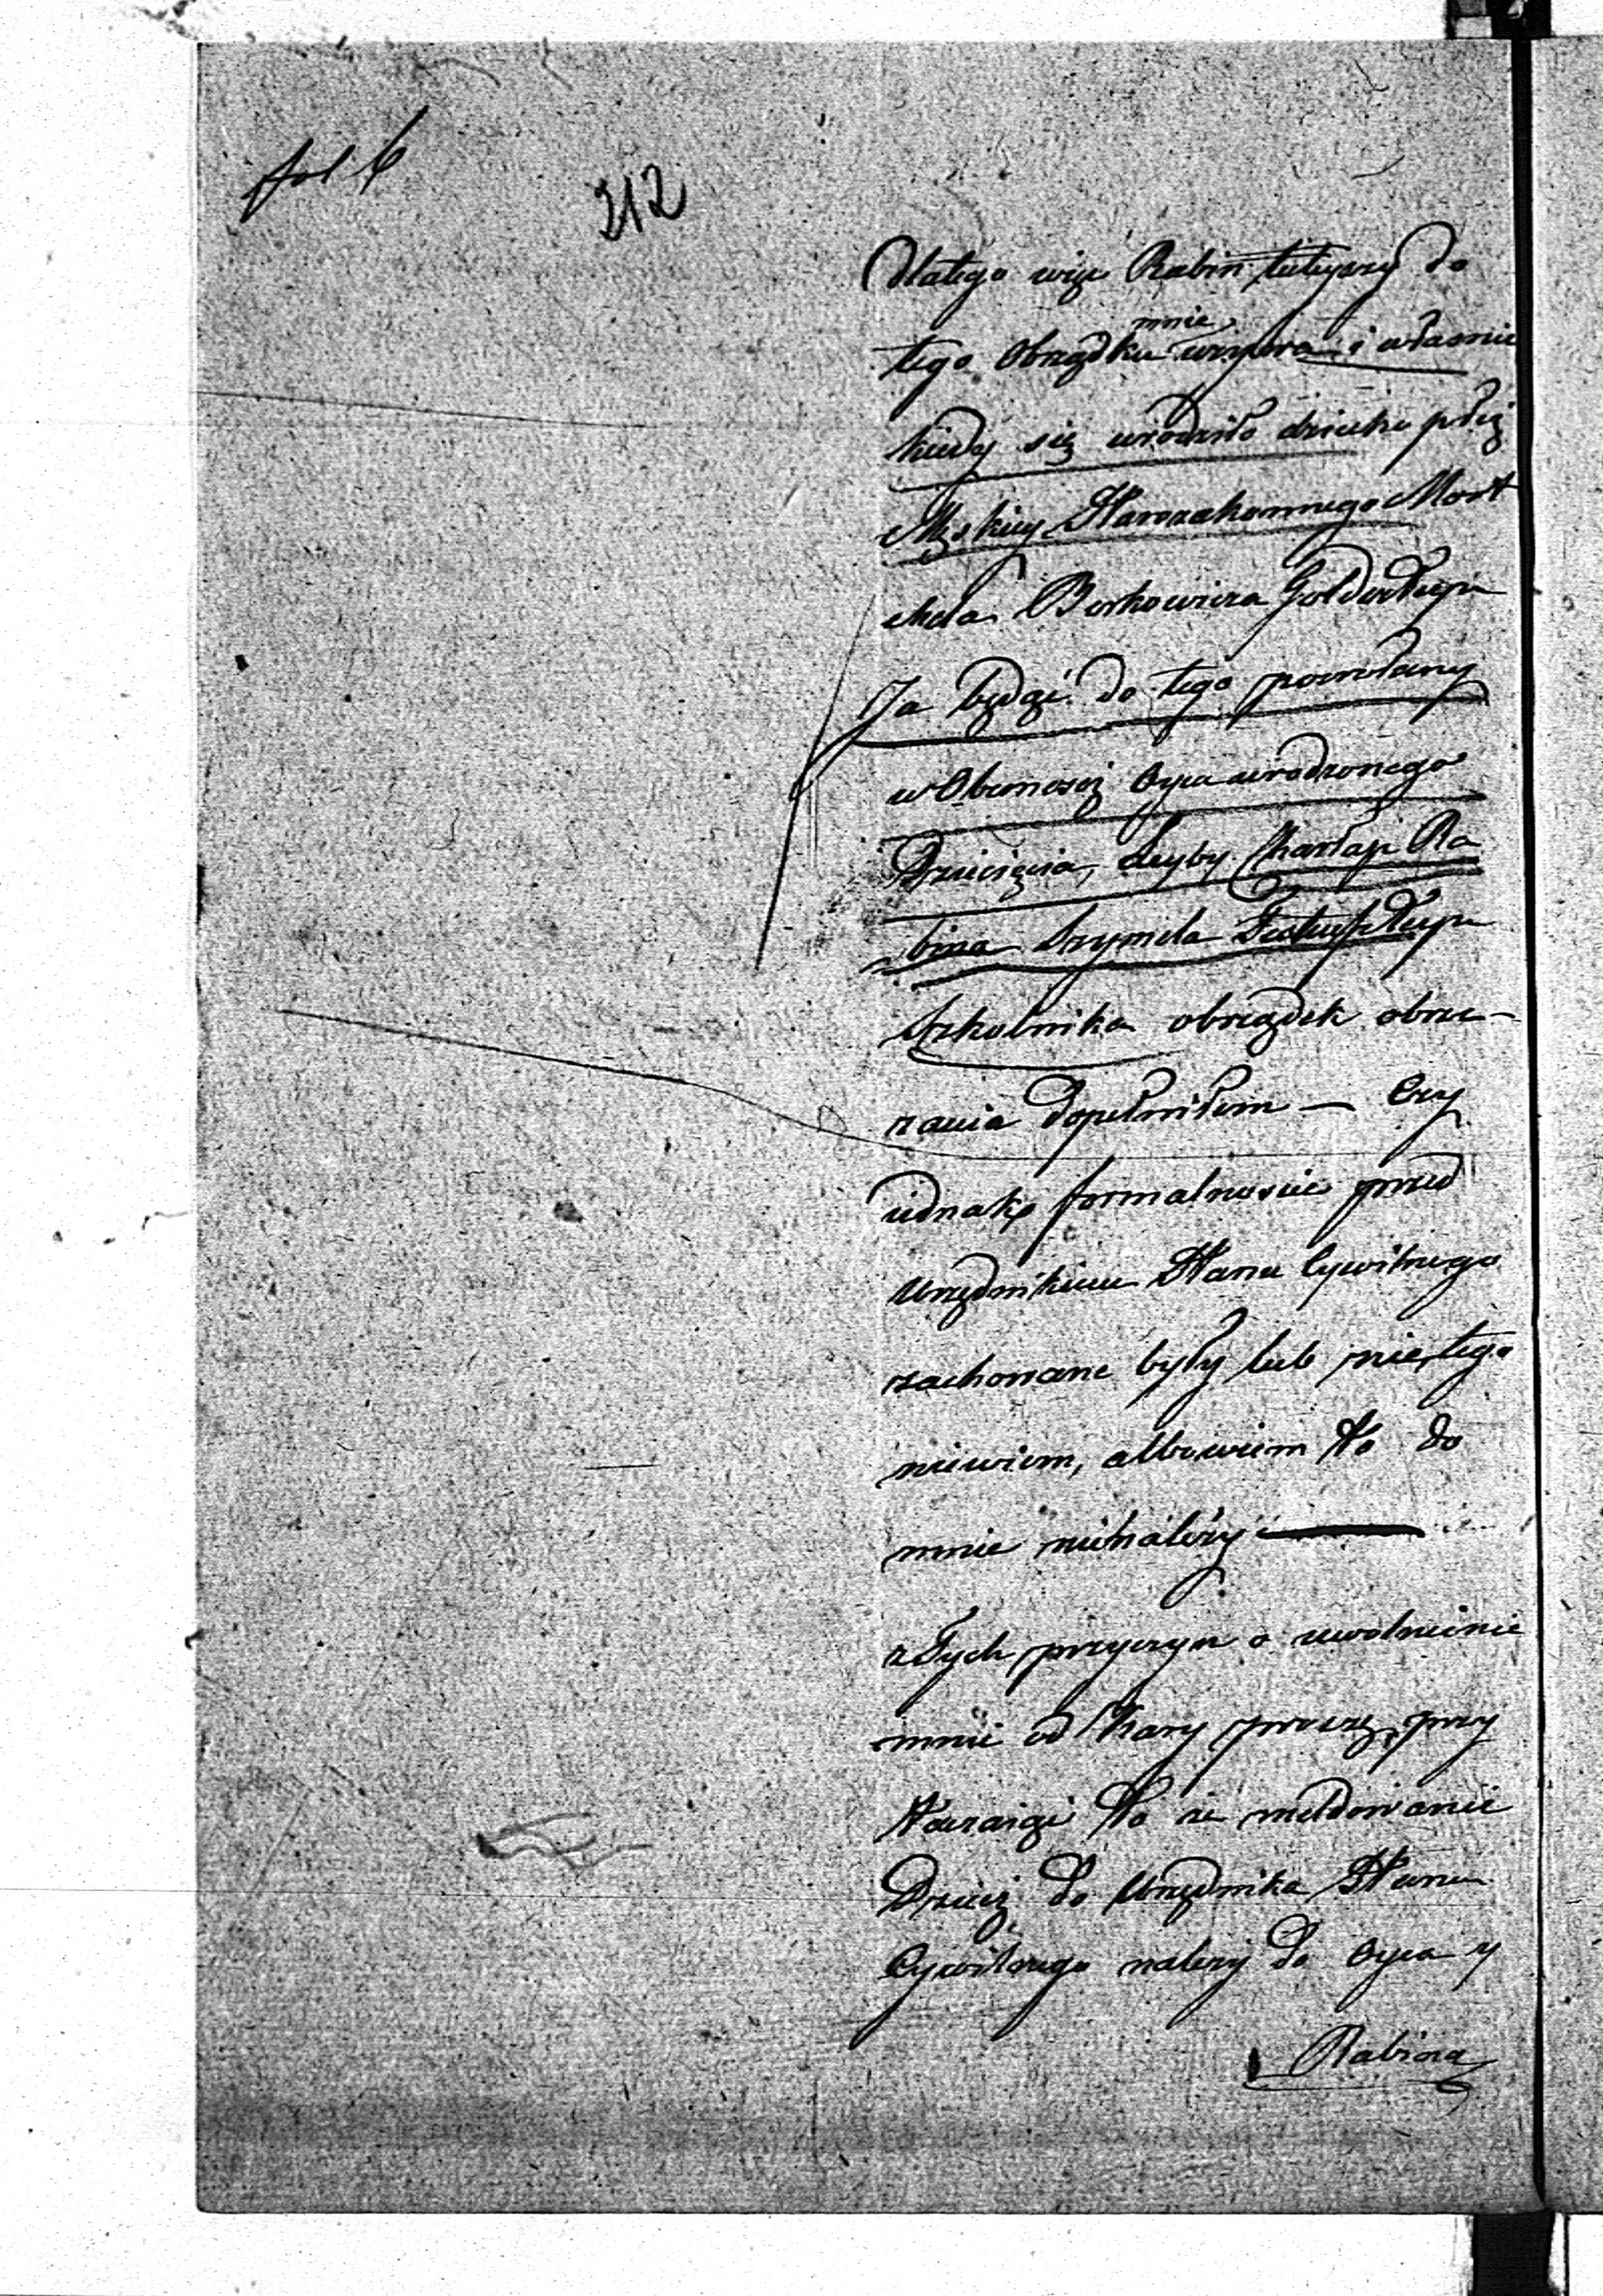 fol 6
212
Dlatego więc Rabin tuteyszy do
mnie
tego Obrządku wzywa i własnie
kiedy się urodziło dziecko płci
Męskiey Starozakonnego Mort
chela Berkowicza
Ja będąc do tego powołany
w Obecnosci Oyca urodzonego
Dziecięcia, Leyby Charłap Ra
bina Szymela
Szkolnika obrządek obrze-
zania dopełniłem — Czy
iednak formalnoscie przed
Urzędnikiem Stanu Cywilnego
zachowane były lub nie, tego
niewiem, albowiem to do
mnie nienależy
z tych przyczyn o uwolnienie
mnie od Kary proszę, przy
tacząiąc to że meldowanie
Dzieci do Urzędnika Stanu
Cywilnego należy do Oyca y
Rabina